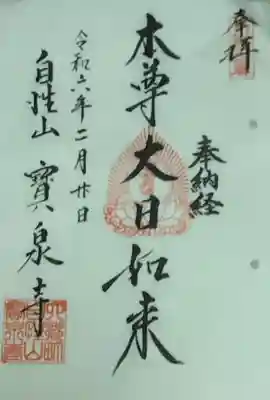 奉拝
奉納経
本尊大日如来
令和六年二月廿日
自性山寶泉寺